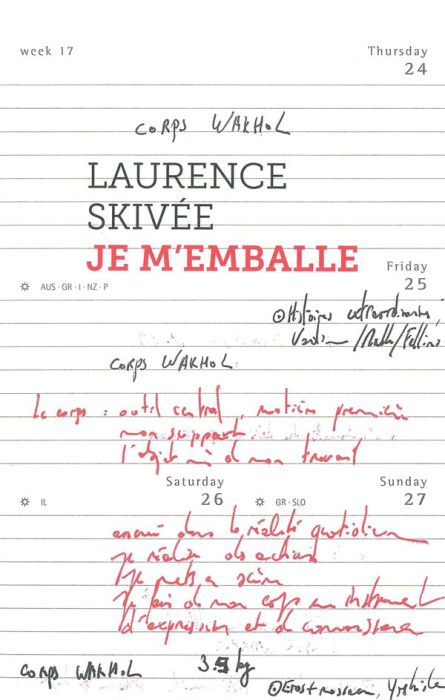 week 17
Thursday
24
CORPS WAKHOL
LAURENCE
SKIVÉE
JE M'EMBALLE
Friday
25
AUS · GR · I · NZ · P
Histoires extraordinaires,
Vadim /Malle/Fellini
CORPS WAKHOL
Le corps : outil central, matière première
mon support
l'objet de mon travail
Saturday
26
IL
Sunday
27
GR · SLO
dans la réalité quotidienne
je réalise des actions
je mets en scène
je fais de mon corps un instrument
d'expression et de connaissance
CORPS WAKHOL
kg